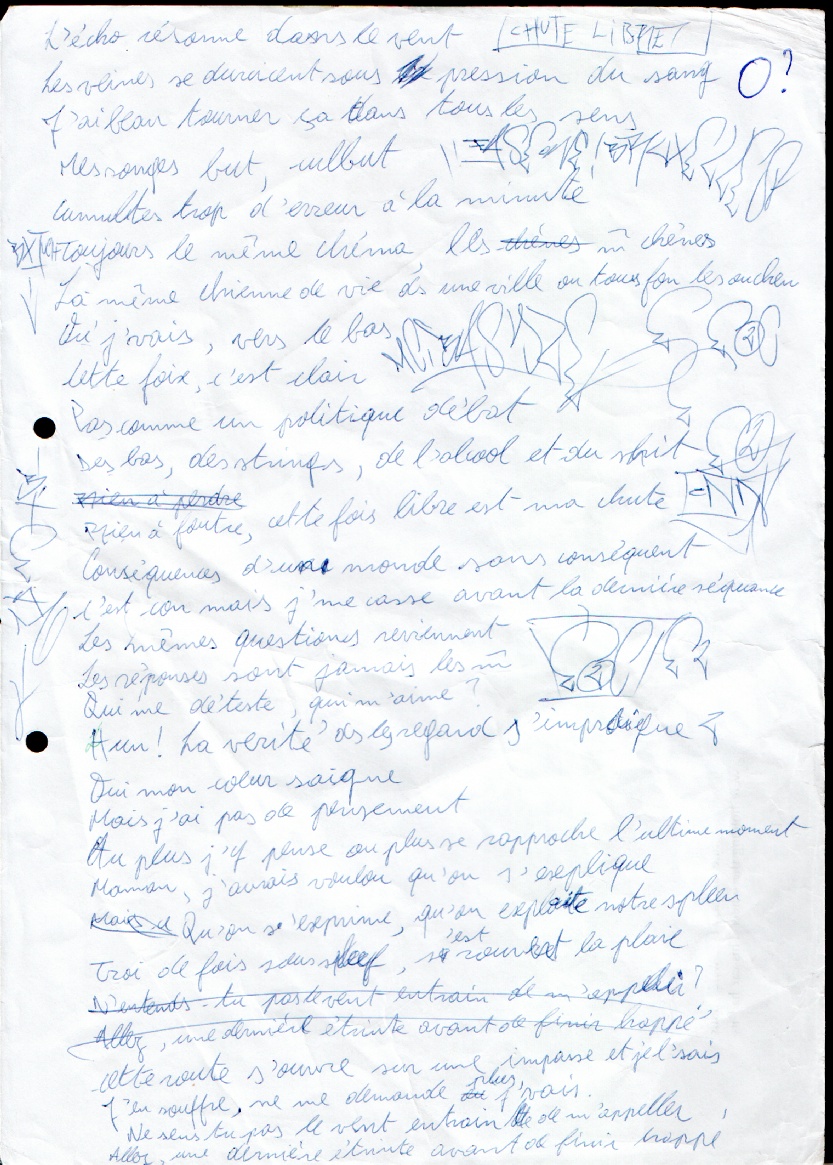 L'écho résonne dans le vent
[CHUTE LIBRE]
Les veines se durcicent sous pression du sang
O?
J'ai beau tourner ça dans tous les sens
Mes songes but, culbut
cumultes trop d'erreur à la minute
Toujours le même chéma, les m̄ chênes
La même chienne de vie ds une ville ou tous fon les
Où j'vais, vers le bas
cette foix, c'est clair
Pas comme un politique débat
Des bas, des strings, de l'alcool et du shit
Rien à perdre
Rien à foutre, cette fois libre est ma chute
Conséquences d'un monde sans conséquent
c'est con mais j'me casse avant la dernière séquance
Les mêmes questions reviennent
Les réponses sont jamais les m̄
Qui me déteste, qui m'aime ?
Hun! La vérité ds les regard s'implique
Oui mon cœur saigne
Mais j'ai pas de pensement
Au plus j'y pense au plus se rapproche l'ultime moment
Maman, j'aurais voulou qu'on s'explique
Qu'on s'exprime, qu'on exploite notre spleen
Troi de fois sous , s'est rouvert la plaie
N'entends-tu pas le vent entrain de m'appeler?
Allez, une dernière étrinte avant de finir happé
cette route s'ouvre sur une impasse et je l'sais
J'en souffre, ne me demande plus où j'vais.
Ne sens tu pas le vent entrain de m'appeller
Allez, une dernière étrinte avant de finir happé